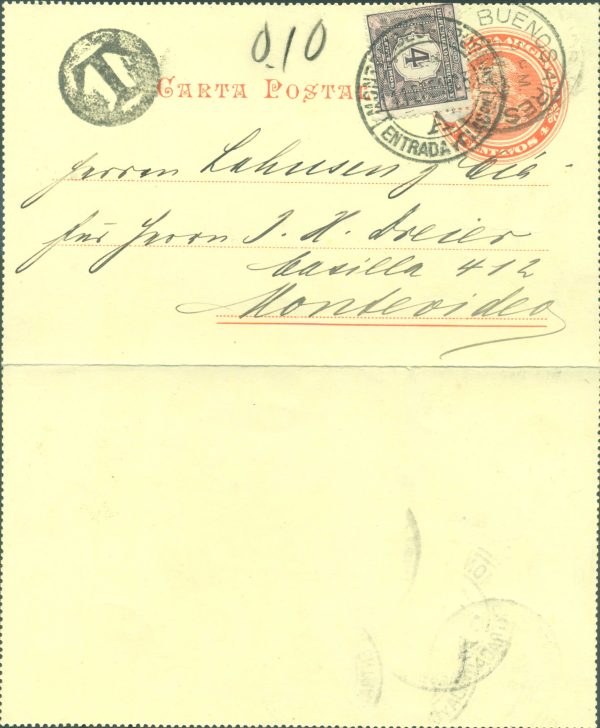 0.10
T
CARTA POSTAL
4
BUENOS AIRES
ENTRADA
A
4 CENTAVOS
Herrn Lahusen y Cía.
für Herrn J. H. Dreier
Casilla 412
Montevideo